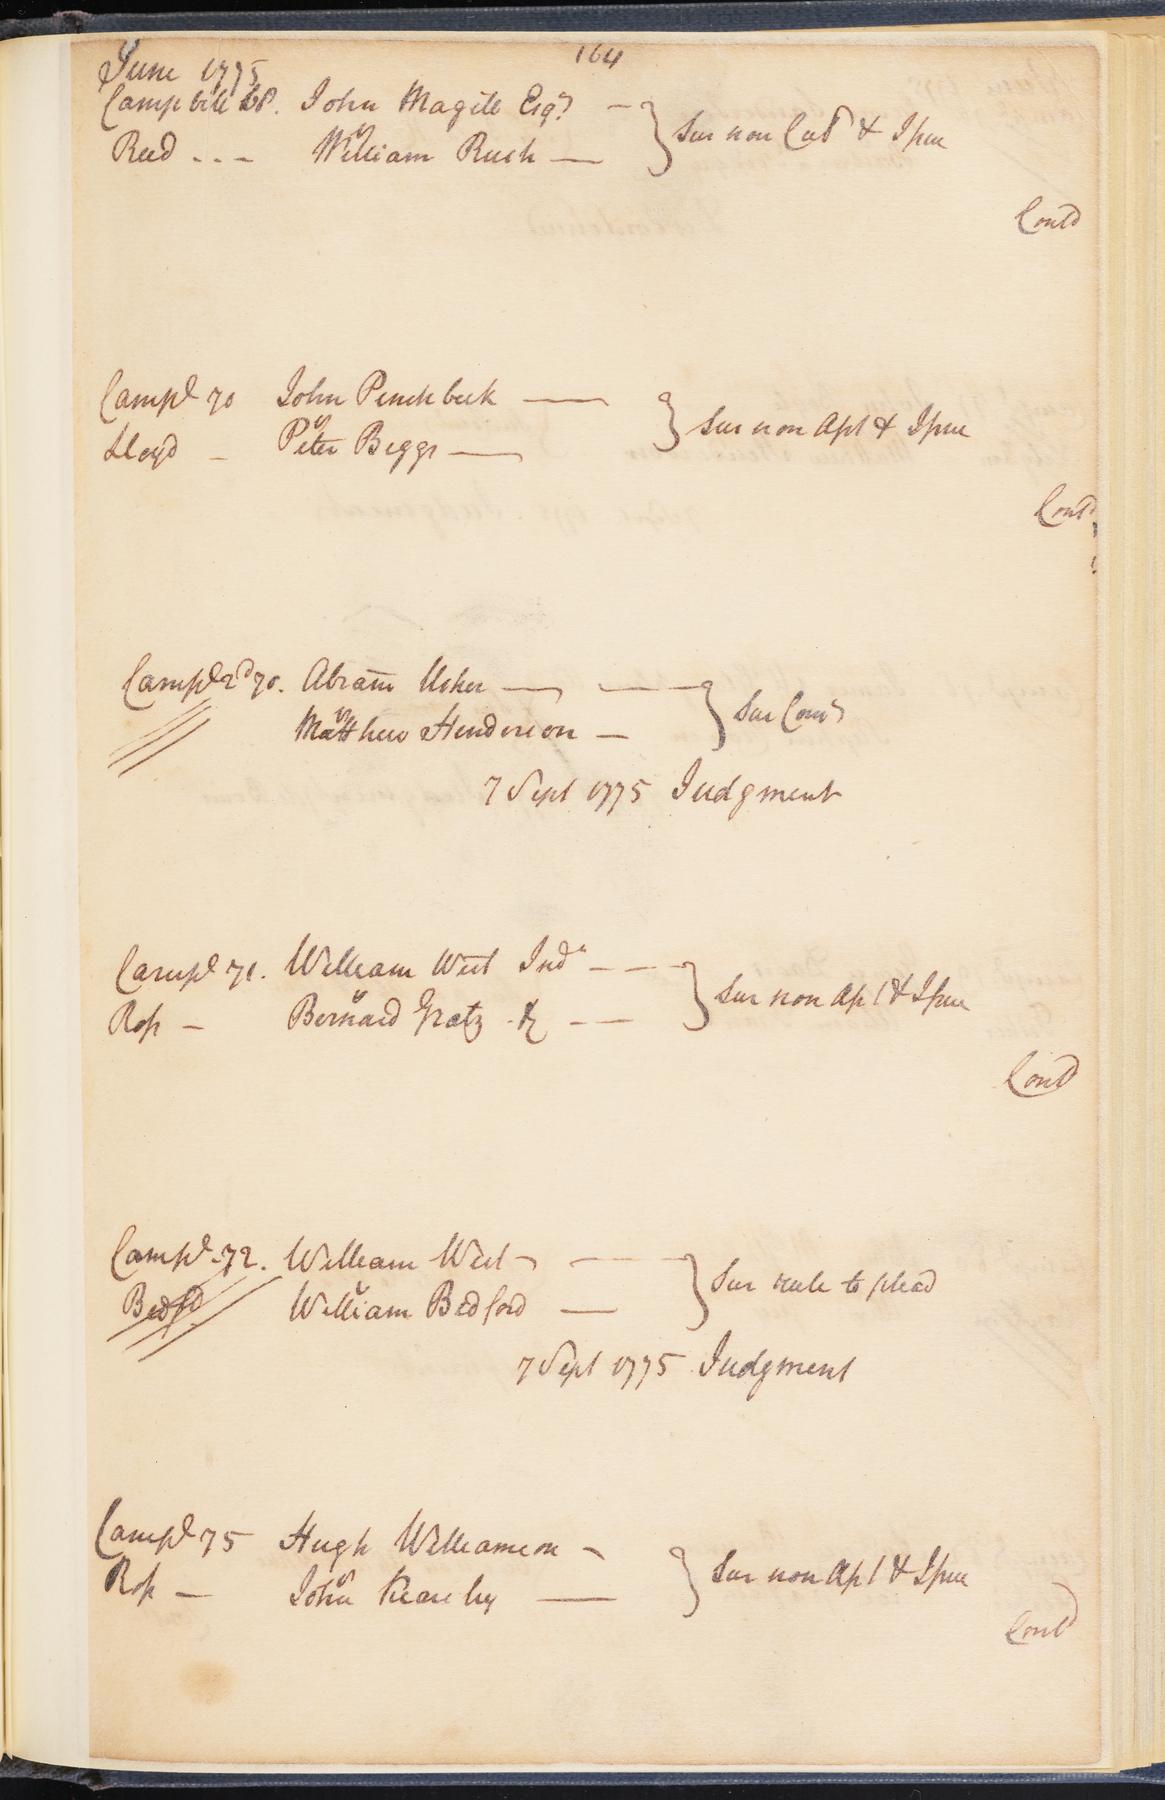 164
June 1775
Campbell 68. John Magill Esqr
vs
Reed - - - William Rush
Sur non Cul & Issue
Contd
Campl 70 John Pinchbeck
vs
Lloyd - Peter Biggs
Sur non Apt & Issue
Contd
Campl 2d 70. Abram Usher
vs
Matthew Henderson
Sur Cond
7 Sept 1775 Judgment
Campl 71. William West Indr
vs
Ross - Bernard Gratz &
Sur non Apt & Issue
Contd
Campl 72. William West
vs
Bedfd William Bedford
Sur rule to plead
7 Sept 1775 Judgment
Campl 75 Hugh Williamson
vs
Ross - John Kearsley
Sur non Apt & Issue
Contd